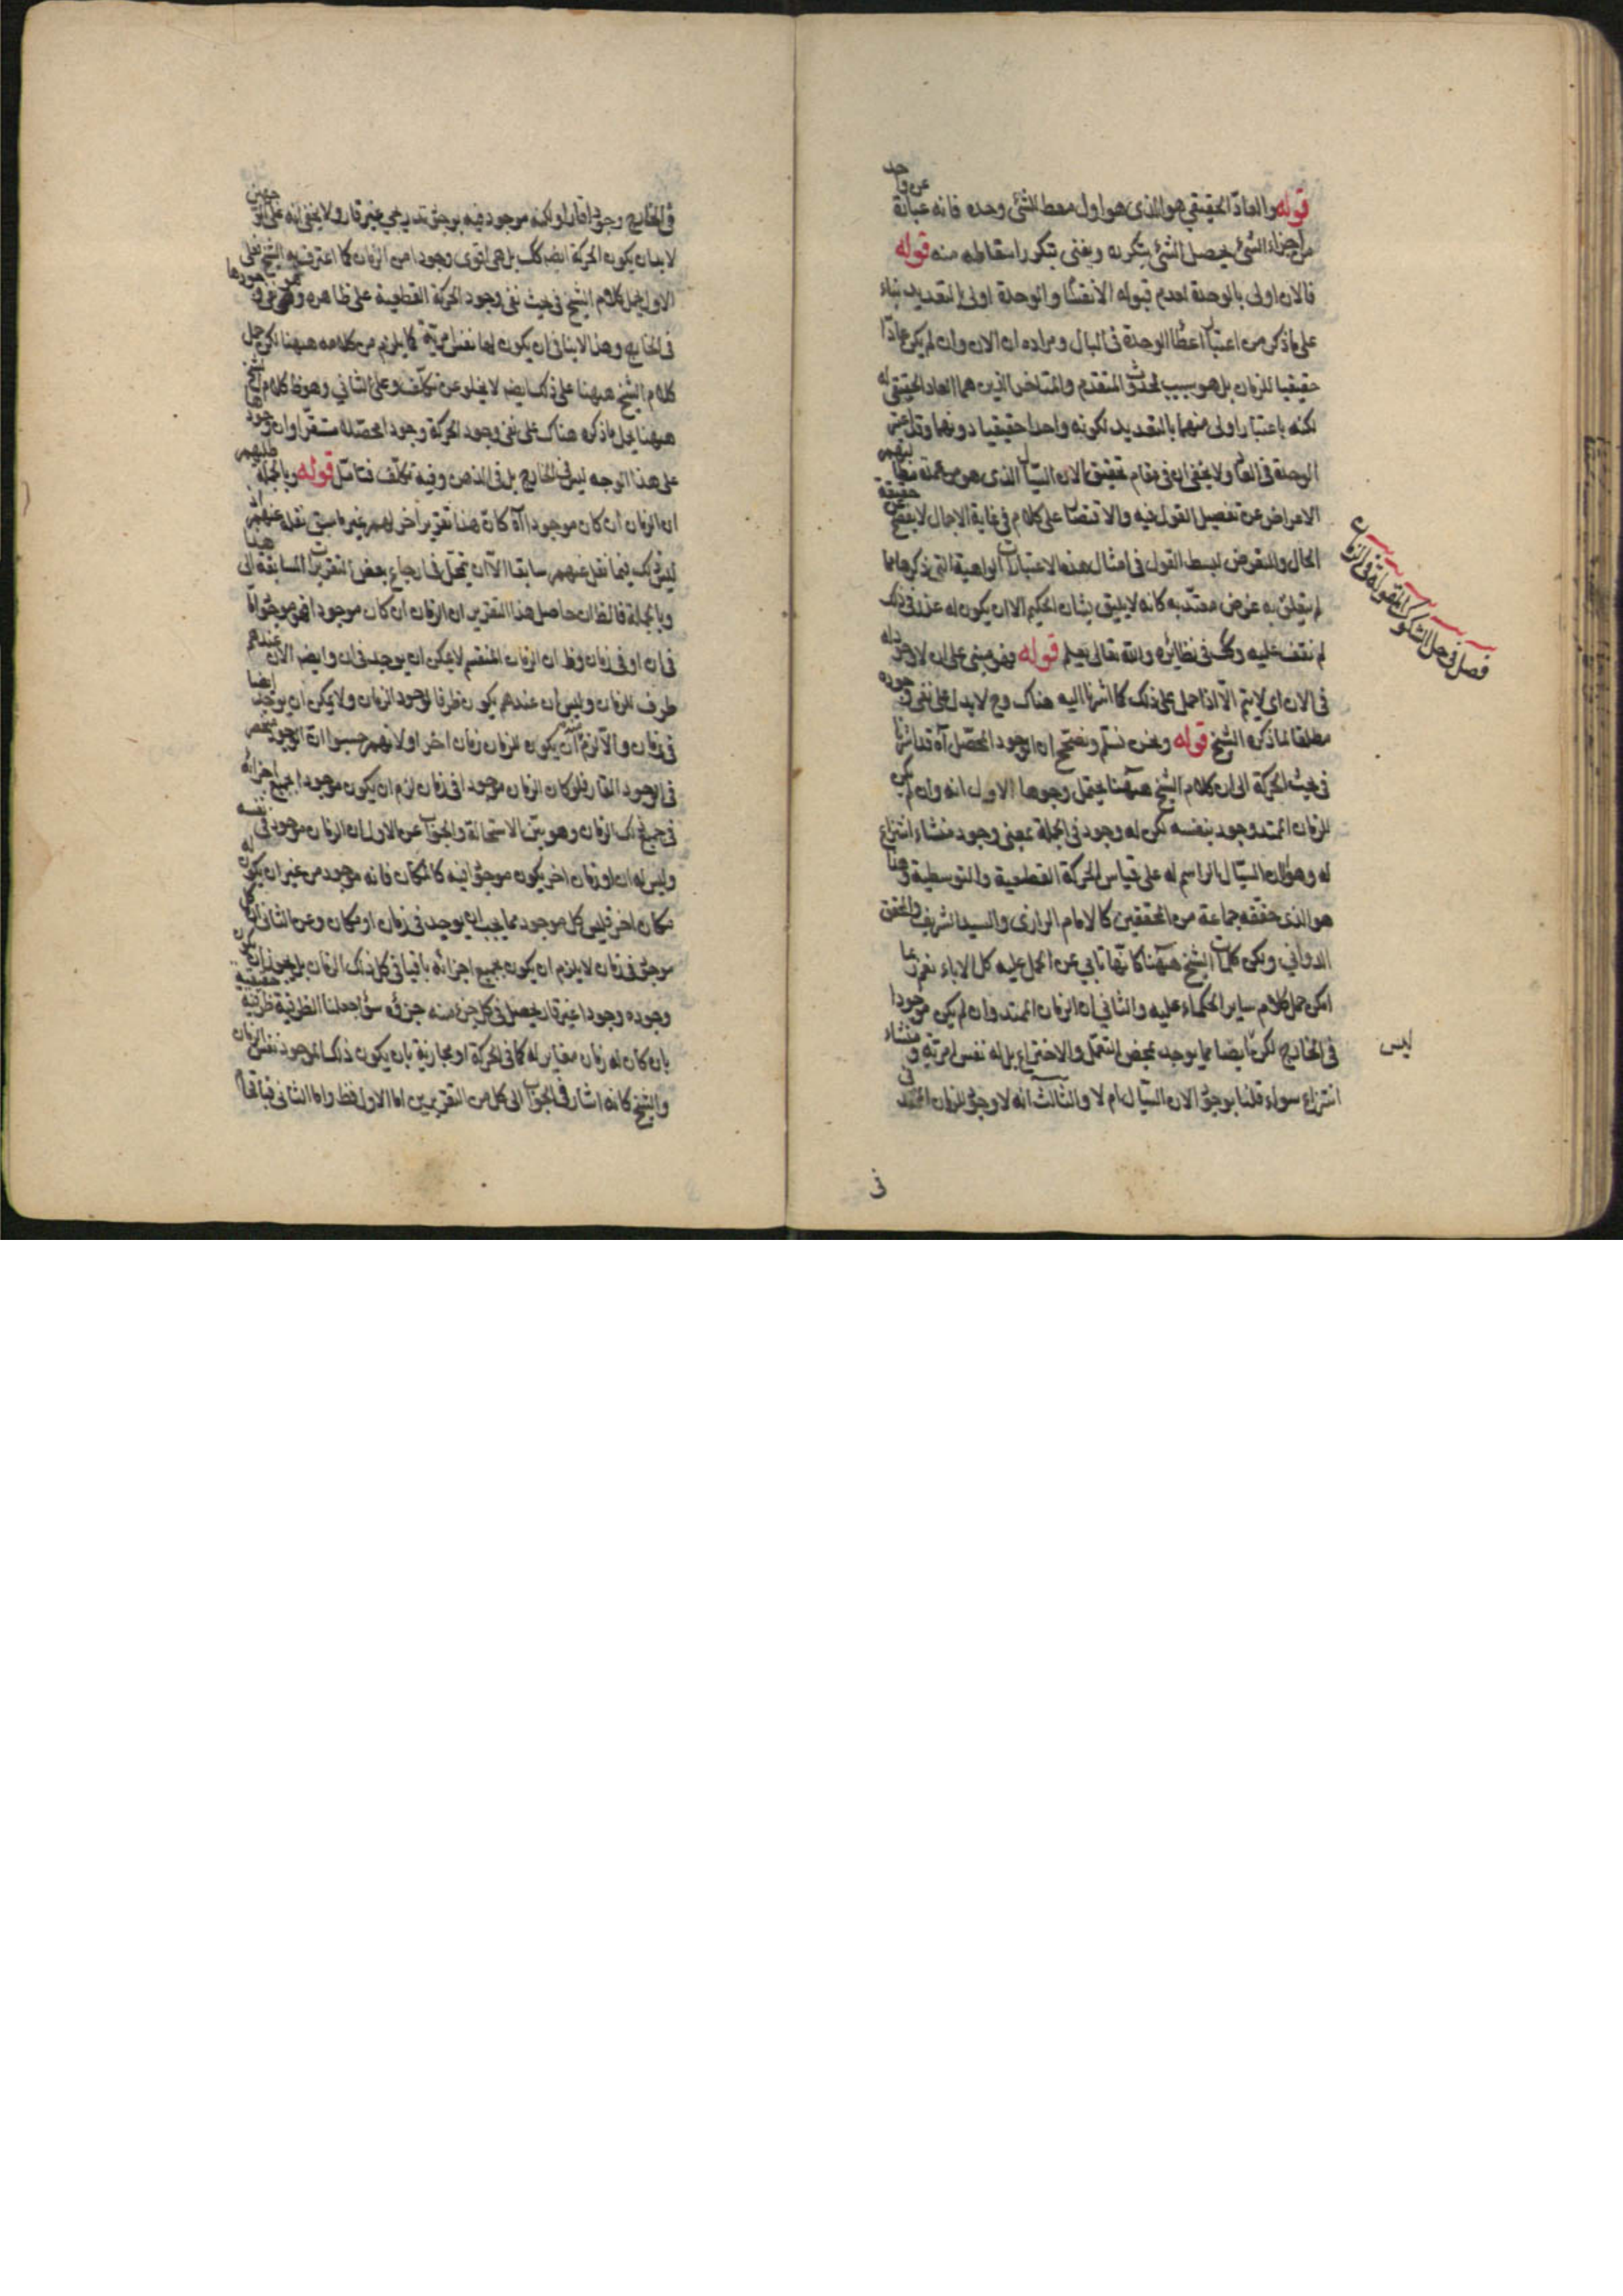 قوله والعاد الحقيقي هو الذي هو اول معط للشئ وحده فانه عبارة عن واحد
من اجزاء الشئ يحصل الشئ بتكرره ويفنى بتكرر اسقاطه منه قوله
فالان اولى بالوحدة لعدم قبوله الانقسام والوحدة اولى بالتعديد بناء
على ما ذكر من اعتبار اعطا الوحدة في البال ومراده ان الان وان لم يكن عادا
حقيقيا للزمان بل هو سبب لحدوث المتقدم والمتاخر الذين هما العاد الحقيقي له
لكنه باعتبار اولى منهما بالتعديد لكونه واحدا حقيقيا دونهما
الوحدة في العاد ولا يخفى ان في مقام تحقيق الان السيال الذي هو من
الاعراض عن تفصيل القول فيه والاقتصار على كلام في غاية الاجمال لا يتضح حقيقة
الحال والتعرض لبسط القول في امثال هذه الاعتبارات الواهية التي ذكرها مما
لم يتعلق به غرض معتد به كانه لا يليق بشان الحكيم الا ان يكون له عذر في ذلك
لم نقف عليه وكذا في نظائره والله تعالى يعلم قوله وهو مبني على ان لا وجود له
في الان اى لا يتم الا اذا حمل على ذلك كما اشرنا اليه هناك وح لا يدل على نفي وجوده
مطلقا لما ذكره الشيخ قوله ونحن نسلم ونصحح ان الوجود المحصل آه قد اشرنا
في بحث الحركة الى ان كلام الشيخ ههنا يحتمل وجوها الاول انه وان لم يكن
للزمان الممتد وجود بنفسه لكن له وجود في الجملة بمعنى وجود منشاء انتزاع
له وهو الان السيال الراسم له على قياس الحركة القطعية والتوسطية وهذا
هو الذي حققه جماعة من المحققين كالامام الرازي والسيد الشريف والمحقق
الدواني ولكن كلمات الشيخ ههنا كانها تابي عن الحمل عليه كل الاباء نعم ربما
امكن حمل كلام ساير الحكماء عليه والثاني ان الزمان الممتد وان لم يكن موجودا
في الخارج لكن ايضا مما يوجد بمحض التعمل والاختراع بل له نفس امرية ومنشاء
انتزاع سواء قلنا بوجود الان السيال ام لا والثالث انه لا وجود للزمان الممتد
في
فصل في حل الشكوك المقولة في الزمان
ليس
في الخارج وجودا قارا ولكنه موجود فيه بوجود تدريجي غير قار ولا يخفى انه على
لا بد ان يكون الحركة ايضا كذلك بل هي اقوى وجودا من الزمان كما اعترف به الشيخ فعلى
الاول يحمل كلام الشيخ في بحث نفي وجود الحركة القطعية على ظاهره وهو نفي وجودها
في الخارج وهذا لا ينافي ان يكون لها نفس امرية كما يلزم من كلامه ههنا لكن حمل
كلام الشيخ ههنا على ذلك ايضا لا يخلو عن تكلف وعلى الثاني وهو ظ كلام الشيخ
ههنا يحمل ما ذكره هناك على نفي وجود الحركة وجودا محصلا مستقرا وان وجودها
على هذا الوجه ليس في الخارج بل في الذهن وفيه تكلف فتامل قوله وبالجملة
ان الزمان ان كان موجودا آه كان هذا تقرير آخر لهم غير ما سبق نقله عنهم
ليس ذلك فيما نقل عنهم سابقا الا ان يتمحل في ارجاع بعض التقريرات السابقة الى هذا
وبالجملة فالظ ان حاصل هذا التقرير ان الزمان ان كان موجودا فهو موجود اما
في ان او في زمان وظ ان الزمان المنقسم لا يمكن ان يوجد في ان وايضا الان عندهم
طرف للزمان وليس ان عندهم يكون ظرفا لوجود الزمان ولا يمكن ان يوجد ايضا
في زمان والا لزم ان يكون للزمان زمان اخر اولانهم حسبوا ان الوجود منحصر
في الوجود القار فلو كان الزمان موجودا في زمان لزم ان يكون موجودا بجميع اجزائه
في جميع ذلك الزمان وهو بين الاستحالة والجواب عن الاول ان الزمان موجود في نفسه
وليس له ان او زمان اخر يكون موجودا فيه كالمكان فانه موجود من غير ان يكون له
مكان اخر فليس كل موجود مما يجب ان يوجد في زمان او مكان وعن الثاني ان كل
موجود في زمان لا يلزم ان يكون بجميع اجزائه باقيا في كل ذلك الزمان بل يجوز ان يكون
وجوده وجودا غير قار يحصل في كل جزء منه جزؤه سواء جعلنا الظرفية ظرفية حقيقية
بان كان له زمان مغاير له كما في الحركة او مجازية بان يكون ذلك الموجود نفس الزمان
والشيخ كانه اشار في الجواب الى كل من التقريرين اما الاول فظ واما الثاني